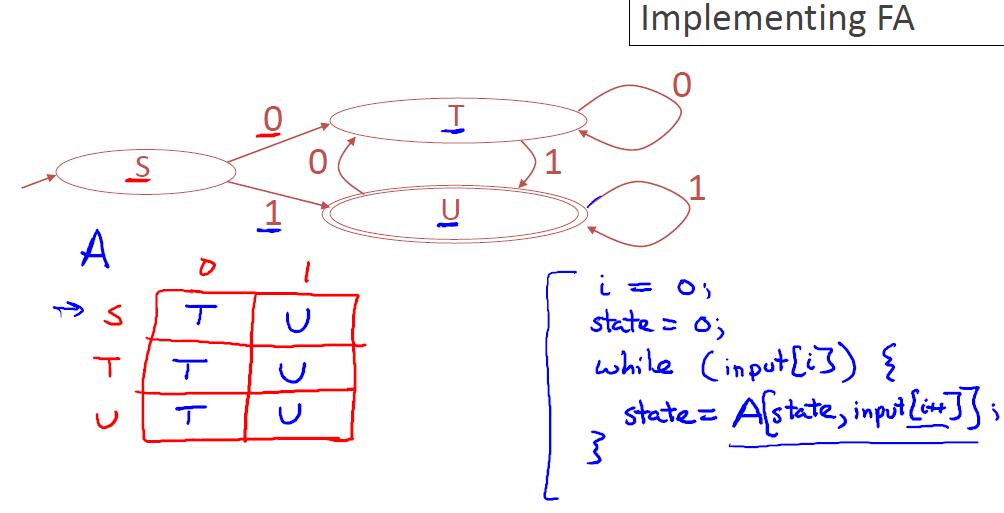 Implementing FA
0
T
0
S
0
1
1
U
1
A
0 1
→ S T U
T T U
U T U
i = 0;
state = 0;
while (input[i]) {
state = A[state, input[i++]];
}